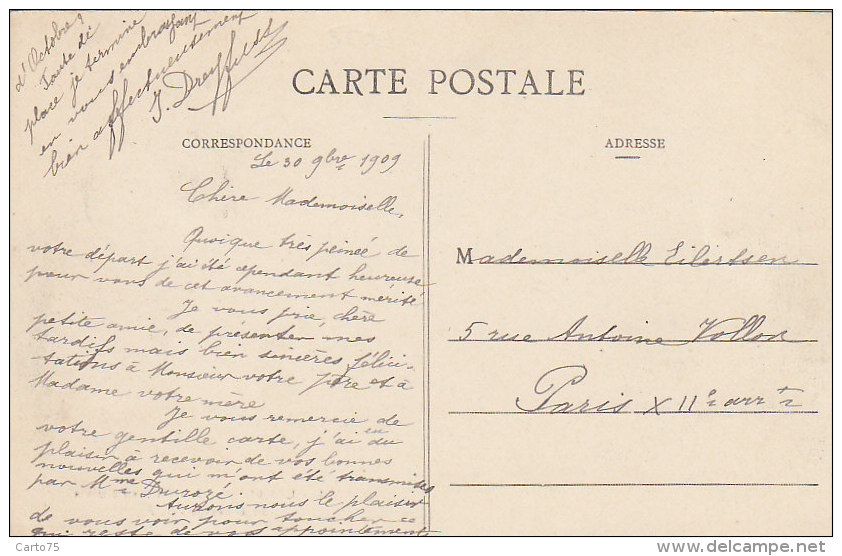 CARTE POSTALE
CORRESPONDANCE
Le 30 9bre 1909
Chère Mademoiselle,
Quoique très peinée de
votre départ j'ai été cependant heureuse
pour vous de cet avancement mérité
Je vous prie, chère
petite amie, de présenter mes
tardifs mais bien sincères félici-
tations à Monsieur votre père et à
Madame votre mère
Je vous remercie de
votre gentille carte, j'ai eu du
plaisir à recevoir de vos bonnes
nouvelles qui m'ont été transmises
par Mme Durozé.
Aurons nous le plaisir
de vous voir pour toucher ce
qui reste de vos appointements
d'Octobre?
Faute de
place je termine
en vous embrassant
bien affectueusement
J. Dreyfuss
ADRESSE
Mademoiselle Eilertsen
5 rue Antoine Vollon
Paris XIIe arrt
Carto75
© delcampe.net